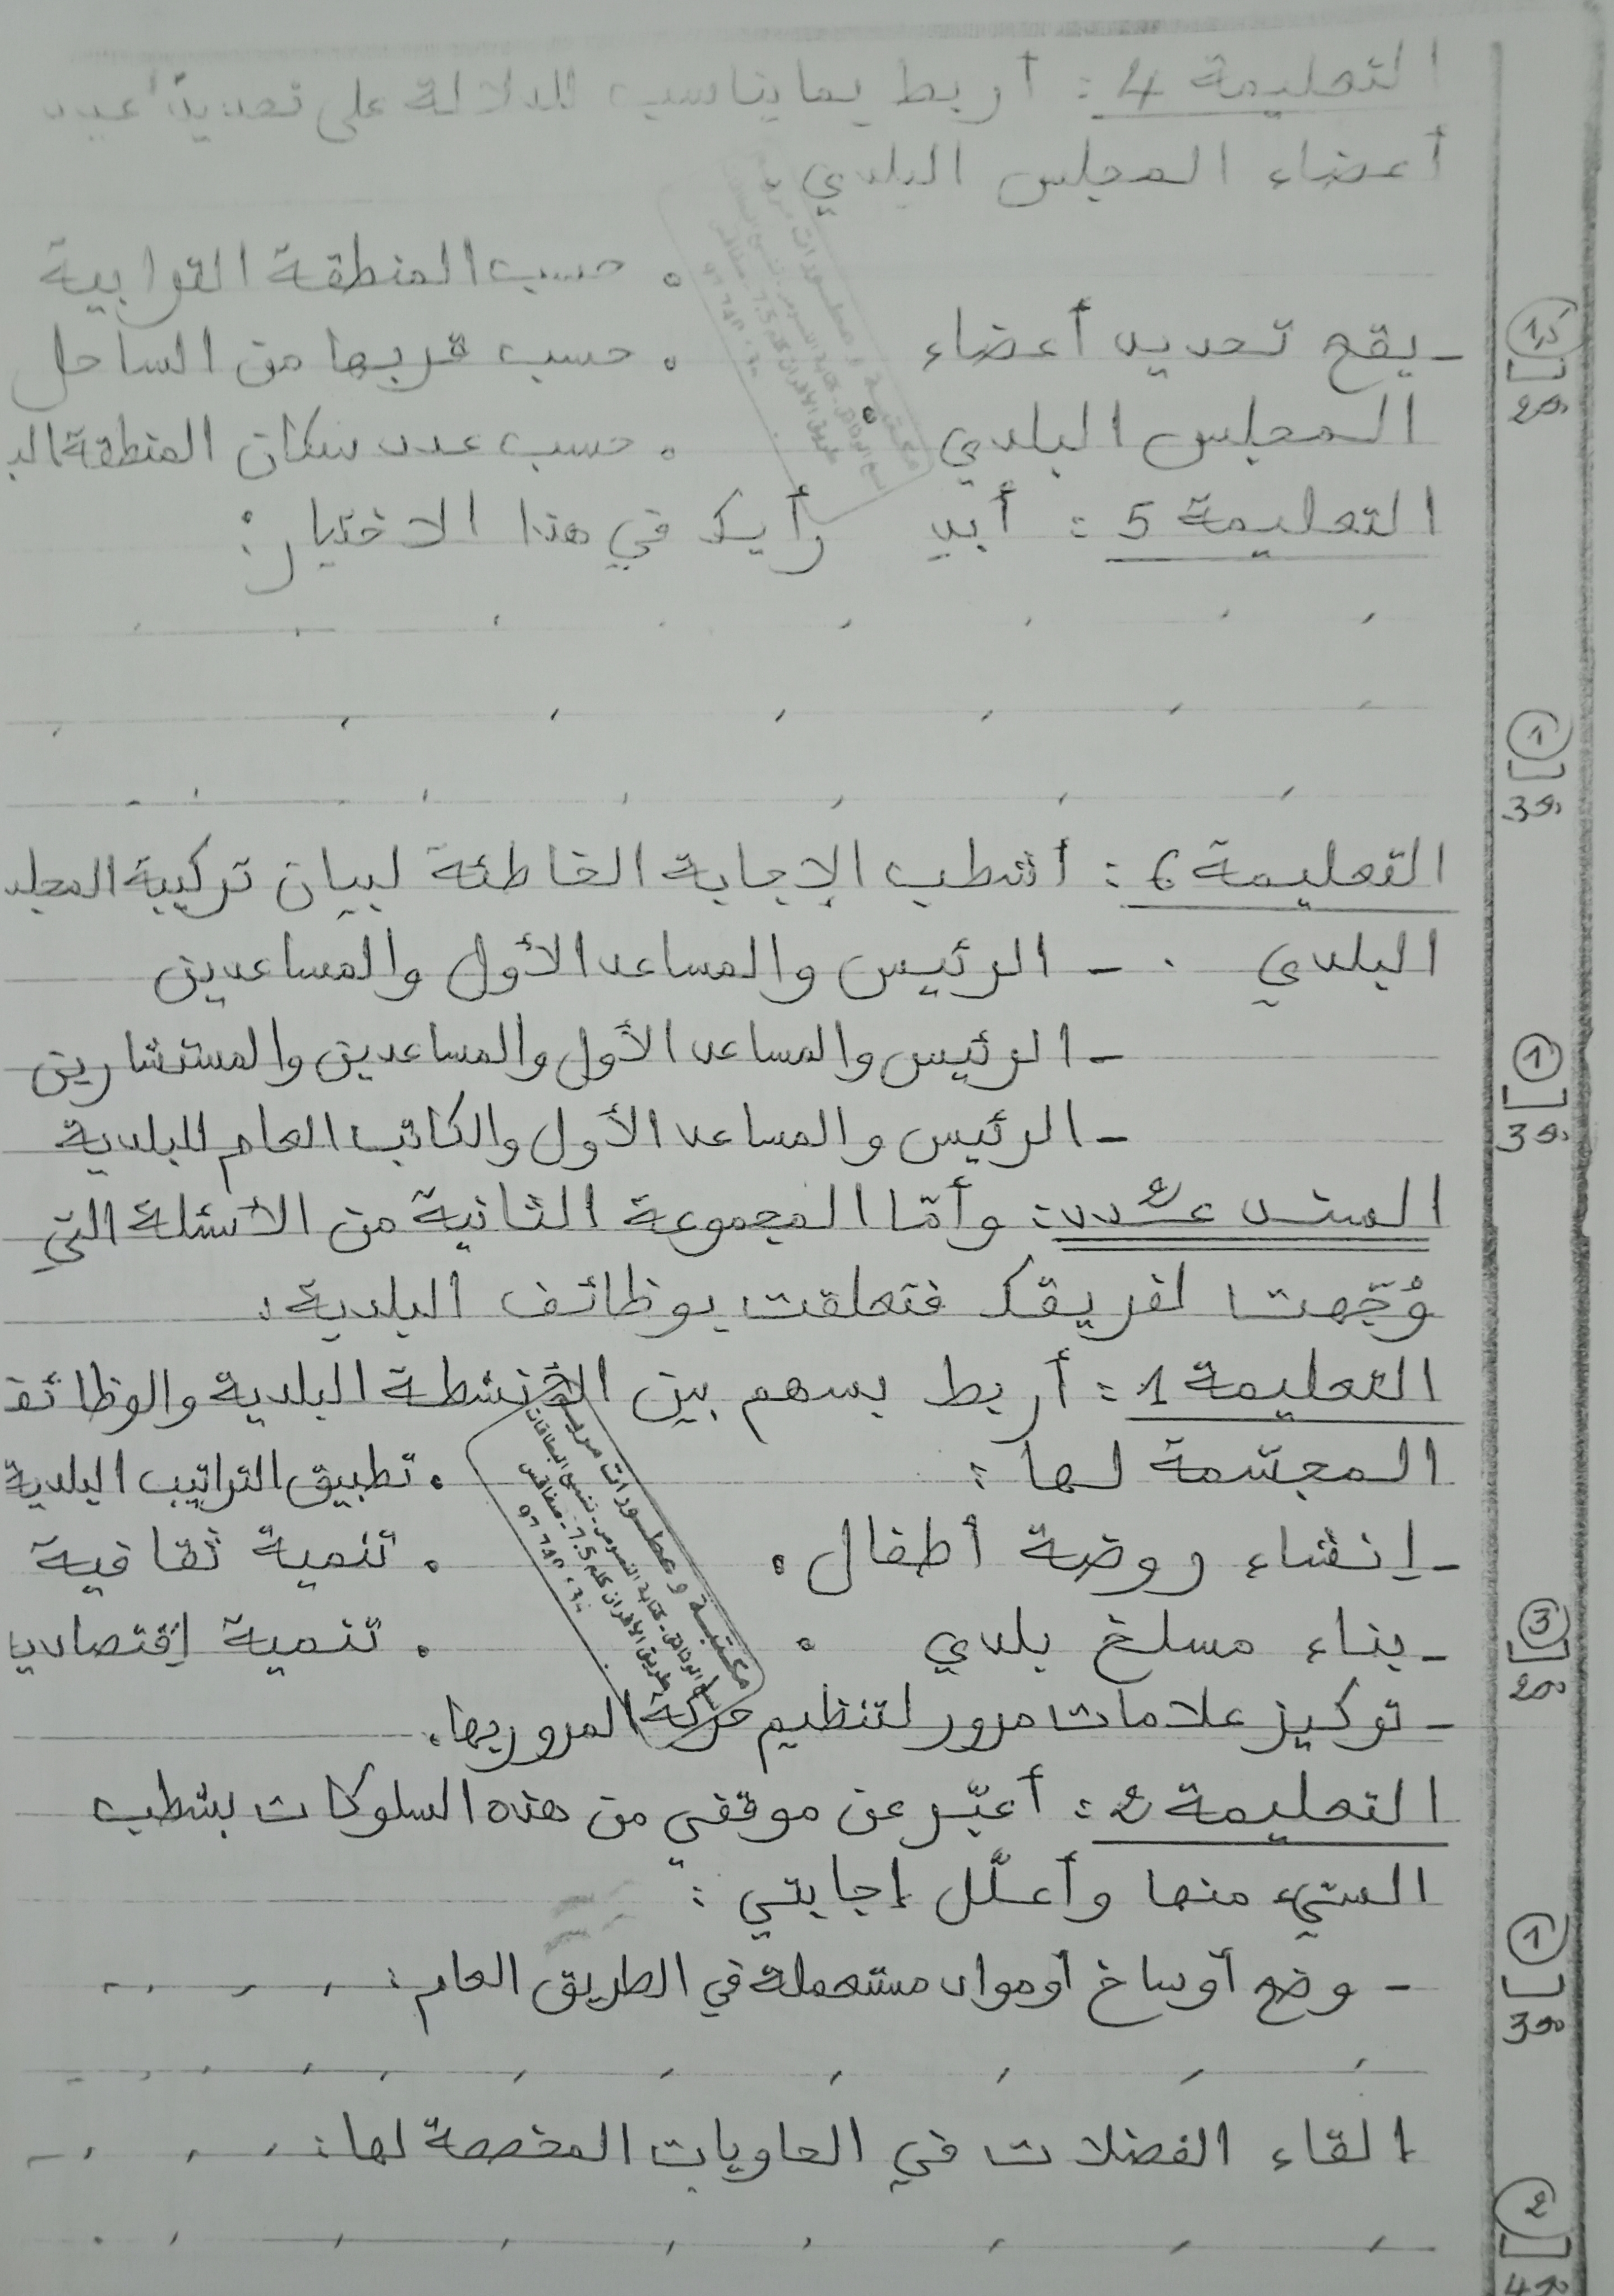 التعليمة 4 : أربط بما يناسب للدلالة على تحديد عدد
أعضاء المجلس البلدي .
• حسب المنطقة الترابية
- يقع تحديد أعضاء • حسب قربها من الساحل
المجلس البلدي • • حسب عدد سكان المنطقة الب
التعليمة 5 : أبد رأيك في هذا الاختيار :
التعليمة 6 : أشطب الإجابة الخاطئة لبيان تركيبة المجلد
البلدي . - الرئيس والمساعد الأول والمساعدين
- الرئيس والمساعد الأول والمساعدين والمستشارين
- الرئيس والمساعد الأول والكاتب العام للبلدية
السند عـ2ـدد : وأمّا المجموعة الثانية من الأسئلة التي
وُجّهت لفريقك فتعلقت بوظائف البلدية :
التعليمة 1 : أربط بسهم بين الأنشطة البلدية والوظائف
المجسّمة لها : • تطبيق التراتيب البلدية
- إنشاء روضة أطفال • • تنمية ثقافية
- بناء مسلخ بلدي • • تنمية إقتصادي
- تركيز علامات مرور لتنظيم حركة المرور بها •
مكتبة وعطورات مريم
نسخ الوثائق - كتابة النصوص - نسخ البطاقات
طريق الأفران كلم 7.5 - صفاقس
التعليمة 2 : أعبّر عن موقفي من هذه السلوكات بشطب
السيّء منها وأعلّل إجابتي :
- وضع أوساخ أو مواد مستعملة في الطريق العام :
القاء الفضلات في الحاويات المخصصة لها :
1,5
مع2
1
مع3
1
مع3
3
مع2
1
مع3
2
مع4